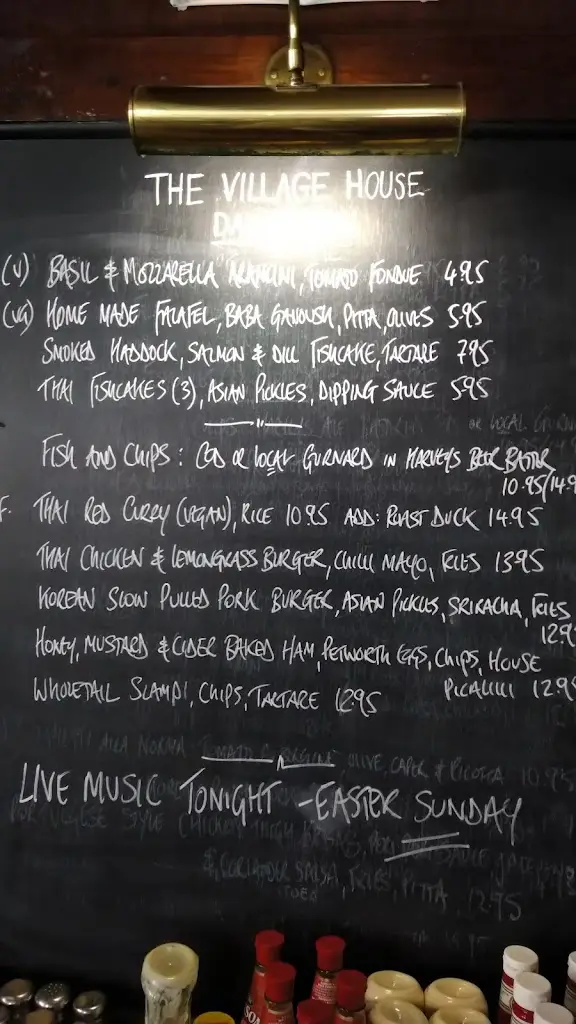 THE VILLAGE HOUSE
(V) BASIL & MOZZARELLA ARANCINI, TOMATO FONDUE 4.95
(VG) HOME MADE FALAFEL, BABA GANOUSH, PITTA, OLIVES 5.95
SMOKED HADDOCK, SALMON & DILL FISHCAKE, TARTARE 7.95
THAI FISHCAKES (3), ASIAN PICKLES, DIPPING SAUCE 5.95
FISH AND CHIPS: COD OR LOCAL GURNARD IN HARVEYS BEER BATTER
10.95/14.9
F. THAI RED CURRY (VEGAN), RICE 10.95 ADD: ROAST DUCK 14.95
THAI CHICKEN & LEMONGRASS BURGER, CHILLI MAYO, FRIES 13.95
KOREAN SLOW PULLED PORK BURGER, ASIAN PICKLES, SRIRACHA, FRIES
12.95
HONEY, MUSTARD & CIDER BAKED HAM, PETWORTH EGGS, CHIPS, HOUSE
PICALILLI 12.95
WHOLETAIL SCAMPI, CHIPS, TARTARE 12.95
OLIVE, CAPER & RICOTTA 10.95
LIVE MUSIC TONIGHT - EASTER SUNDAY
STYLE CHICKEN THIGH
& CORIANDER SALSA, FRIES, PITTA 12.95